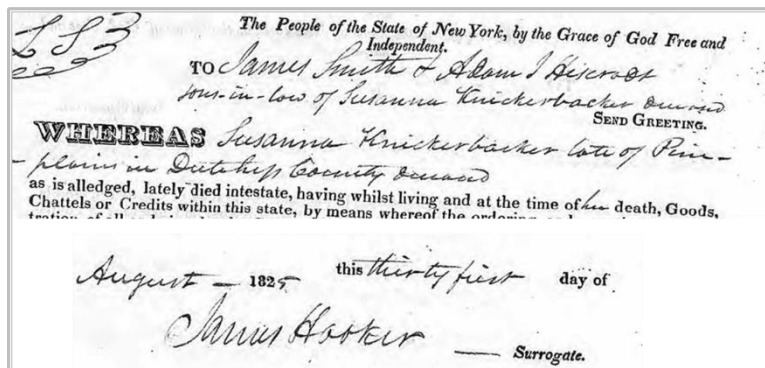 The People of the State of New York, by the Grace of God Free and
Independent.
TO James Smith & Adam I Hiserodt
sons-in-law of Susanna Knickerbacker deceased
SEND GREETING.
WHEREAS Susanna Knickerbacker late of Pine-
plains in Dutchess County deceased
as is alledged, lately died intestate, having whilst living and at the time of her death, Goods,
Chattels or Credits within this state, by means whereof the ordering and
tration of all and
this thirty first day of
August 1825
James Hooker
Surrogate.